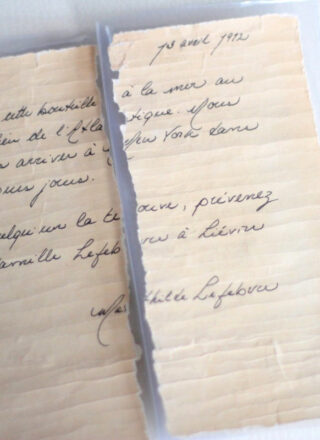 13 avril 1912
cette bouteille à la mer au
lieu de l'Atlantique. Nous
arriver à New York dans
ques jours.
quelqu'un la trouve, prévenez
famille Lefebvre à Liévin
Mathilde Lefebvre